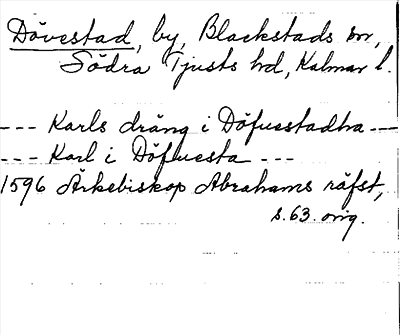 Dövestad, by, Blackstads sn,
Södra Tjusts hd, Kalmar l.
--- Karls dräng i Döfuestadha ---
--- Karl i Döfuesta ---
1596 Ärkebiskop Abrahams räfst,
s. 63. orig.